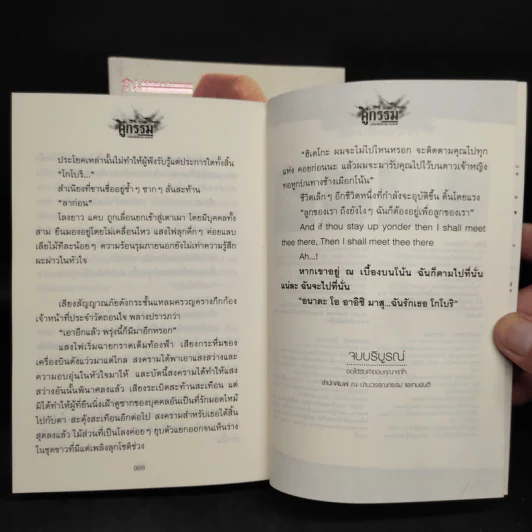 คู่กรรม
ประโยคเหล่านั้นไม่ทำให้ผู้ฟังรับรู้แต่ประการใดทั้งสิ้น
"โกโบริ..."
สำเนียงที่ชานชื่ออยู่ซ้ำๆ ซากๆ สั่นสะท้าน
"ลาก่อน"
โลงยาว แคบ ถูกเลื่อนยกเข้าสู่เตาเผา โดยมีบุคคลทั้ง
สาม ยืนมองอยู่โดยไม่เคลื่อนไหว แสงไฟลุกคึ่กๆ ค่อยแลบ
เลียไม้ทีละน้อยๆ ความร้อนรุมภายนอกยังไม่เท่าความรู้สึก
ผะผ่าวในหัวใจ
เสียงสัญญาณภัยดังกระชั้นแหลมครวญครางกึกก้อง
เจ้าหน้าที่ประจำวัดถอนใจ พลางปรารภว่า
"เอาอีกแล้ว พรุ่งนี้ก็มีมาอีกหรอก"
แสงไฟเริ่มฉายกราดเต็มท้องฟ้า เสียงกระหึ่มของ
เครื่องบินดังแว่วมาแต่ไกล สงครามได้พาเอาแสงสว่างและ
ความอบอุ่นในหัวใจมาให้ และบัดนี้สงครามได้ทำให้แสง
สว่างอันนั้นพินาศลงแล้ว เสียงระเบิดสะท้านสะเทือน แต่
มิได้ทำให้ผู้ที่ยืนนิ่งเฝ้าดูซากของบุคคลอันเป็นที่รักมอดไหม้
ไปกับตา สะดุ้งสะเทือนอีกต่อไป สงครามสำหรับเธอได้สิ้น
สุดลงแล้ว ไม้ส่วนที่เป็นโลงค่อยๆ ยุบตัวแยกออกจนเห็นร่าง
ในชุดขาวที่มีแต่เพลิงลุกโชติช่วง
988
คู่กรรม
"ฮิเดโกะ ผมจะไม่ไปไหนหรอก จะติดตามคุณไปทุก
แห่ง คอยก่อนนะ แล้วผมจะมารับคุณไปไว้บนดาวเจ้าหญิง
ทอหูกบนทางช้างเผือกโน้น"
ชีวิตเล็กๆ อีกชีวิตหนึ่งที่กำลังจะอุบัติขึ้น ดิ้นโดยแรง
"ลูกของเรา ถึงยังไงๆ ฉันก็ต้องอยู่เพื่อลูกของเรา"
And if thou stay up yonder then I shall
meet thee there, Then I shall meet thee there
Ah...!
หากเขาอยู่ ณ เบื้องบนโน้น ฉันก็ตามไปที่นั่น
แน่ละ ฉันจะไปที่นั่น
"อนาตะ โอ อาอิชิ มาสุ...ฉันรักเธอ โกโบริ"
จบบริบูรณ์
ขอได้รับคำขอบคุณจากใจ
สำนักพิมพ์ ณ บ้านวรรณกรรม และทมยันตี